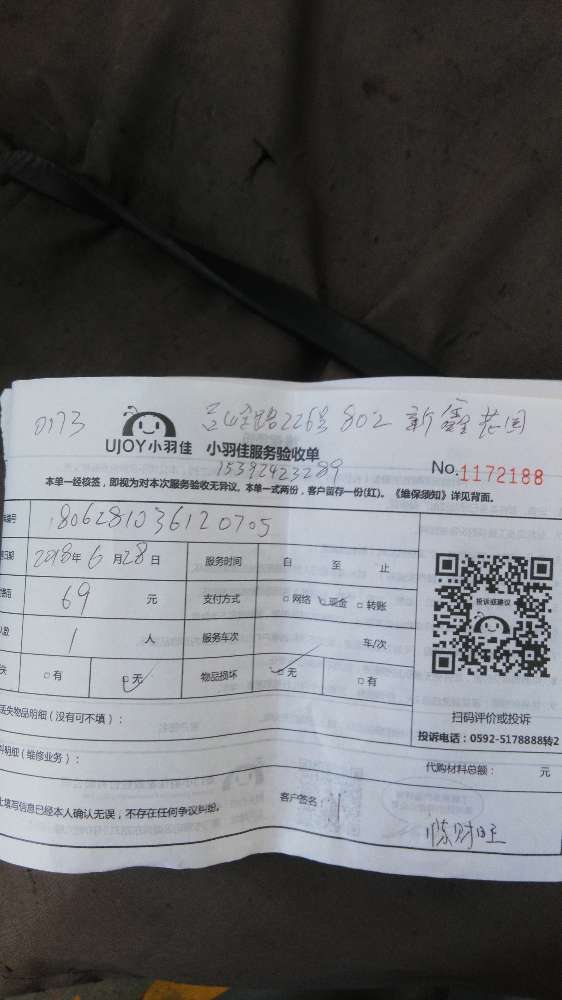 0173 吕岭路226号802 新鑫花园
UJOY小羽佳 小羽佳服务验收单
15392423289
No.1172188
本单一经核签，即视为对本次服务验收无异议。本单一式两份，客户留存一份(红)。《维保须知》详见背面。
编号 1806281036120705
日期 2018年6月28日 服务时间 自 至 止
69 元 支付方式 □网络 □现金 □转账
人数 1 人 服务车次 车/次
失 □有 □无 物品损坏 □无 □有
投诉或建议
扫码评价或投诉
投诉电话：0592-5178888转2
丢失物品明细（没有可不填）：
料明细（维修业务）： 代购材料总额： 元
上填写信息已经本人确认无误，不存在任何争议纠纷。 客户签名：
陈财旺